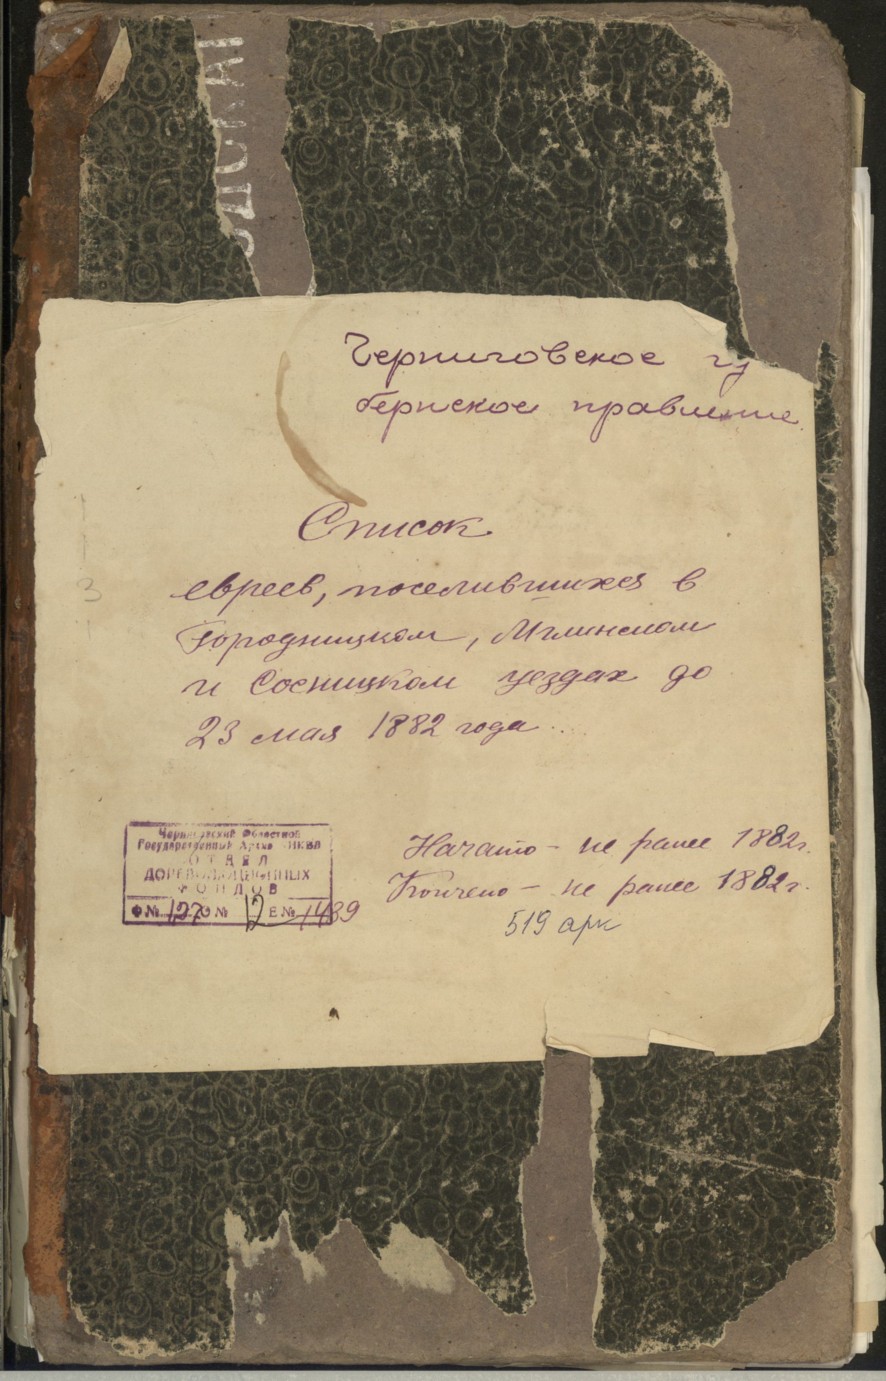 Черниговское гу
бернское правление.
Список
евреев, поселившихся в
Городницком, Мглинском
и Сосницком уездах до
23 мая 1882 года..
Черниговский Областной
Государственный Архив НКВД
ОТДЕЛ
ДОРЕВОЛЮЦИОННЫХ
ФОНДОВ
Ф № 127 О № 12 Е №
Начато – не ранее 1882г.
Кончено – не ранее 1882г.
519 арк
3